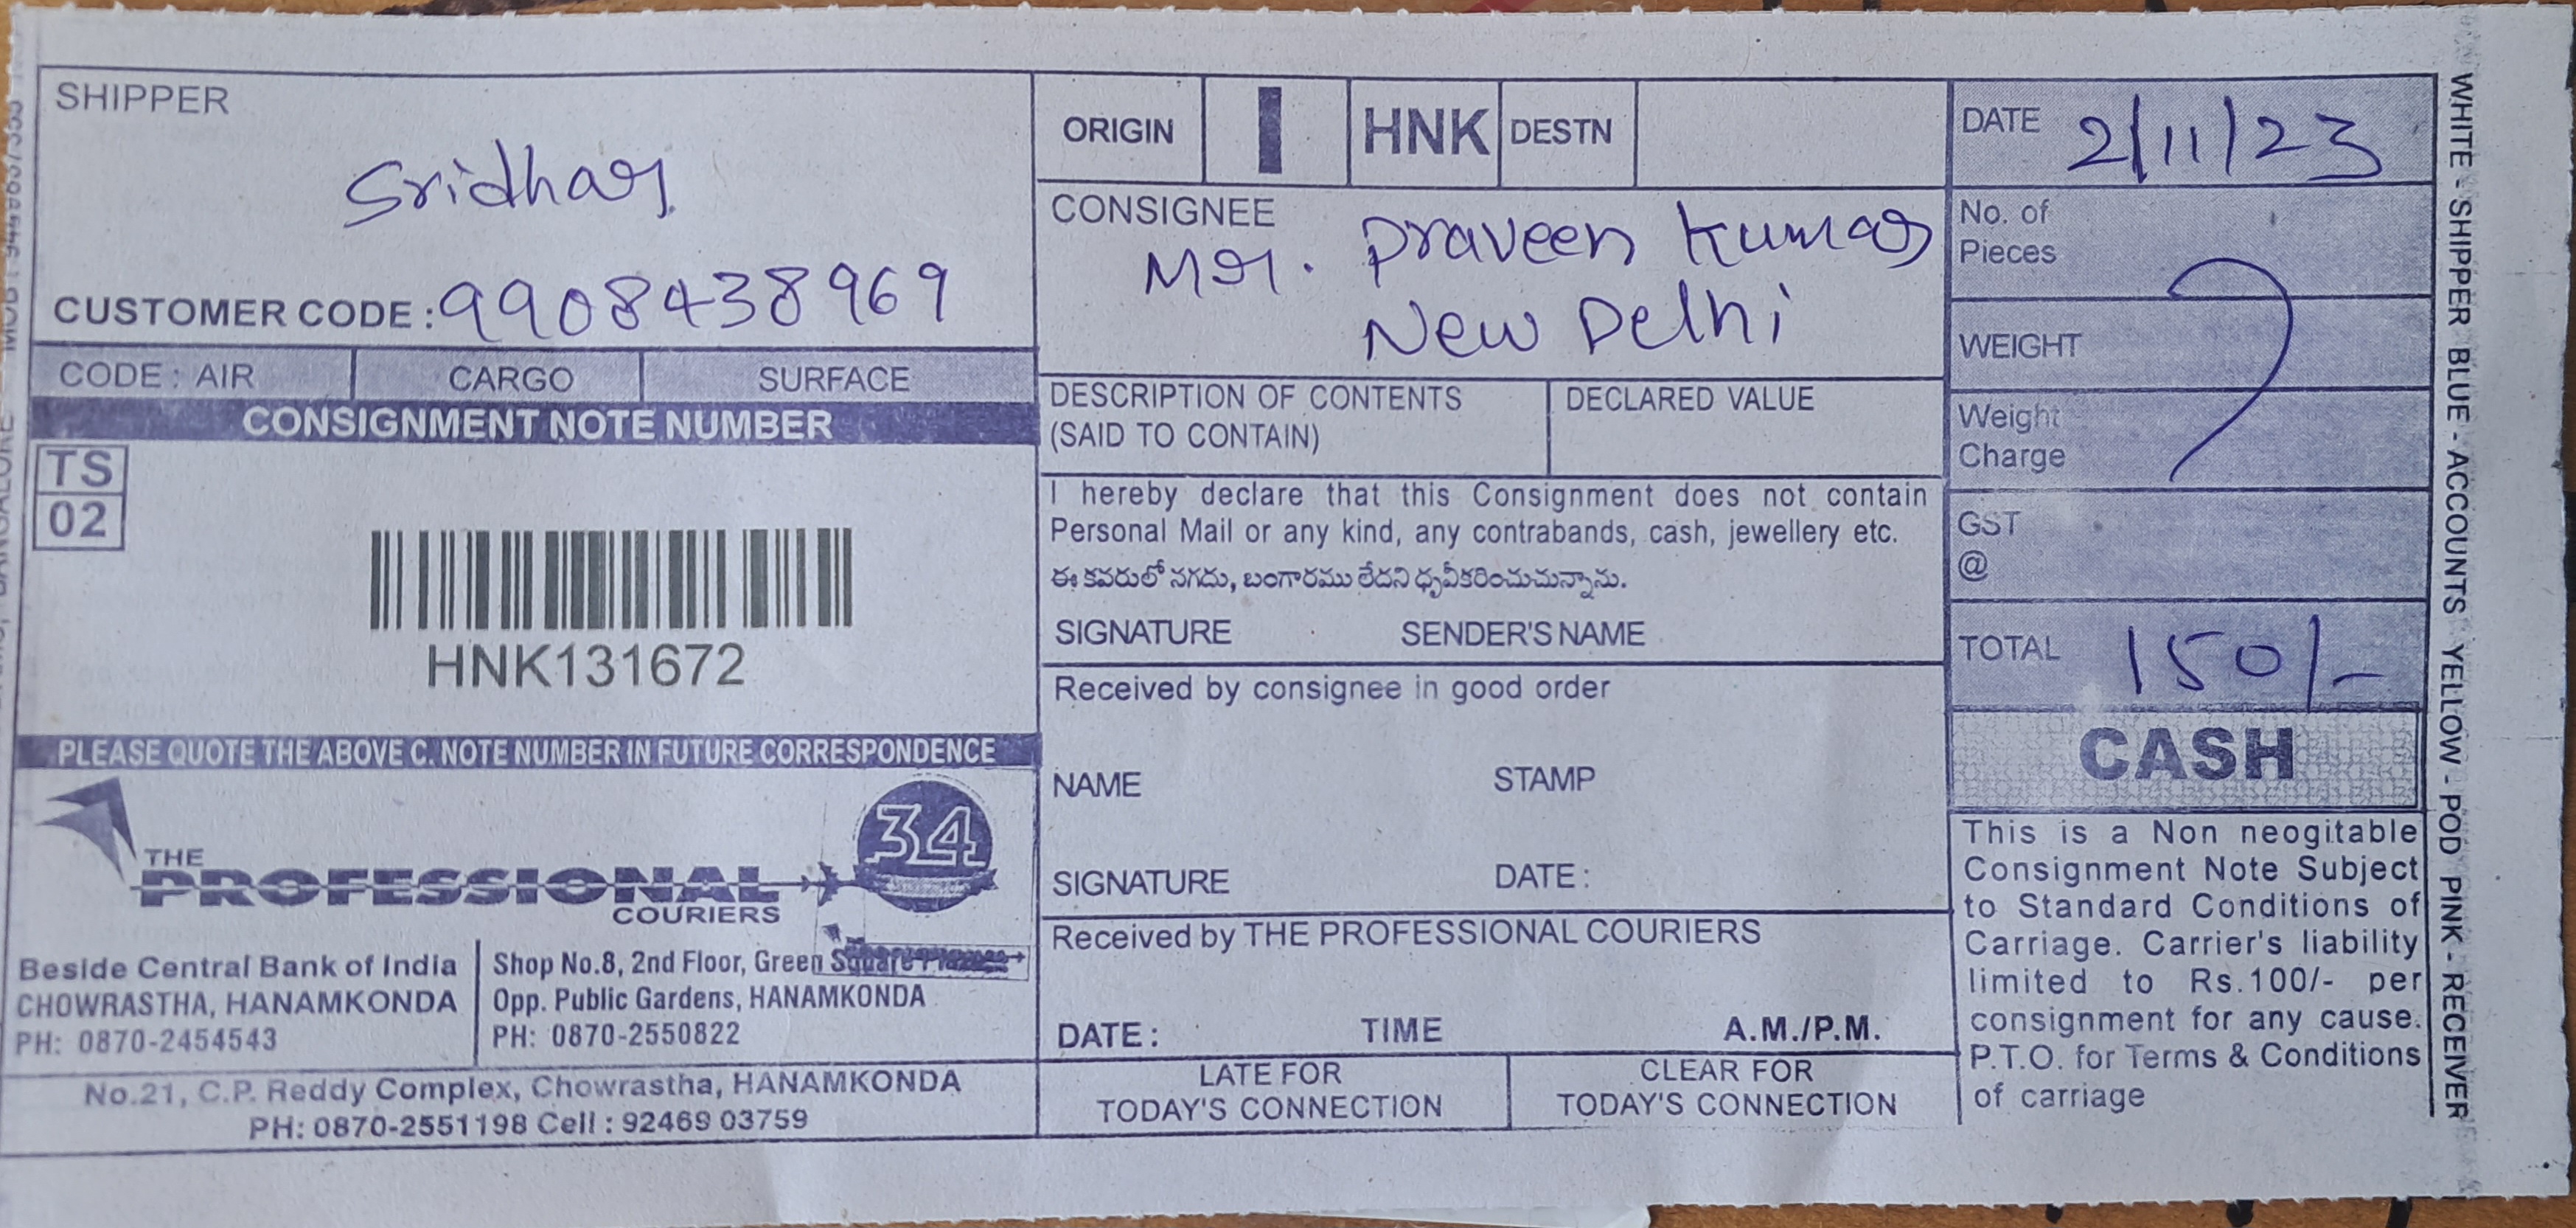 SHIPPER
Sridhar
CUSTOMER CODE : 9908438969
CODE : AIR CARGO SURFACE
CONSIGNMENT NOTE NUMBER
TS
02
HNK131672
PLEASE QUOTE THE ABOVE C. NOTE NUMBER IN FUTURE CORRESPONDENCE
34
THE
PROFESSIONAL
COURIERS
Beside Central Bank of India
CHOWRASTHA, HANAMKONDA
PH: 0870-2454543
Shop No.8, 2nd Floor, Green Square
Opp. Public Gardens, HANAMKONDA
PH: 0870-2550822
No.21, C.P. Reddy Complex, Chowrastha, HANAMKONDA
PH: 0870-2551198 Cell : 92469 03759
ORIGIN I HNK DESTN
CONSIGNEE
Mr. Praveen Kumar
New Delhi
DESCRIPTION OF CONTENTS
(SAID TO CONTAIN)
DECLARED VALUE
I hereby declare that this Consignment does not contain
Personal Mail or any kind, any contrabands, cash, jewellery etc.
ఈ కవరులో నగదు, బంగారము లేదని ధృవీకరించుచున్నాను.
SIGNATURE SENDER'S NAME
Received by consignee in good order
NAME STAMP
SIGNATURE DATE :
Received by THE PROFESSIONAL COURIERS
DATE : TIME A.M./P.M.
LATE FOR
TODAY'S CONNECTION
CLEAR FOR
TODAY'S CONNECTION
DATE 2/11/23
No. of
Pieces
WEIGHT
Weight
Charge
GST
@
TOTAL 150/-
CASH
This is a Non neogitable
Consignment Note Subject
to Standard Conditions of
Carriage. Carrier's liability
limited to Rs.100/- per
consignment for any cause.
P.T.O. for Terms & Conditions
of carriage
WHITE - SHIPPER BLUE - ACCOUNTS YELLOW - POD PINK - RECEIVER